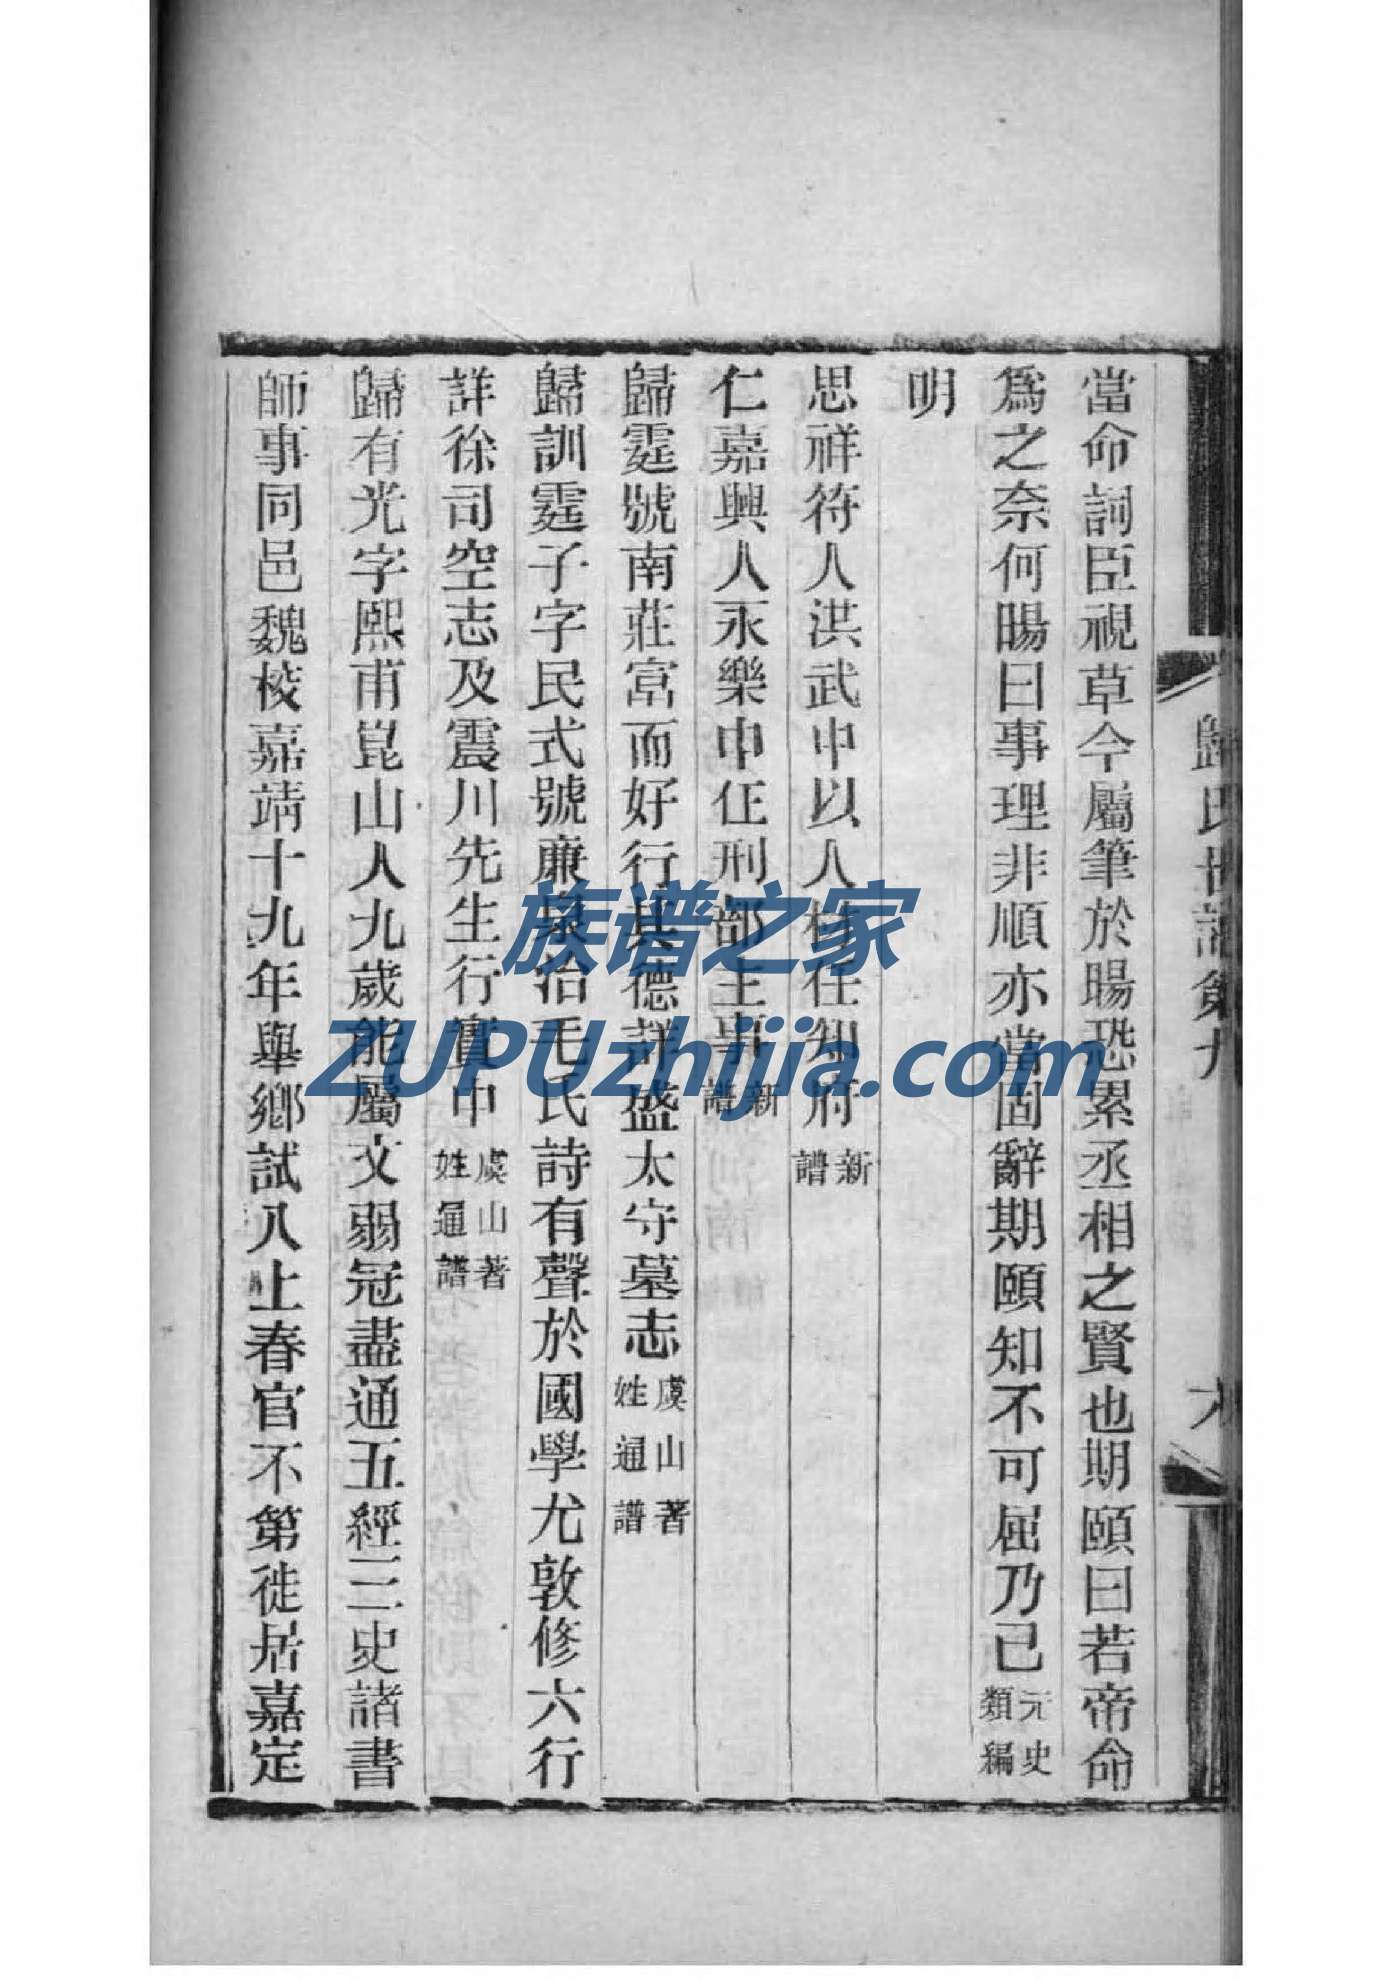 當命詞臣視草今屬筆於暘恐累丞相之賢也期頤曰若帝命
爲之奈何暘曰事理非順亦當固辭期頤知不可屈乃已元史類編
明
思祥符人洪武中以人材任知府新譜
仁嘉興人永樂中任刑部主事新譜
歸霆號南莊富而好行其德詳盛太守墓志虞山著姓通譜
歸訓霆子字民式號廉泉治毛氏詩有聲於國學尤敦修六行
詳徐司空志及震川先生行實中虞山著姓通譜
歸有光字熙甫崑山人九歲能屬文弱冠盡通五經三史諸書
師事同邑魏校嘉靖十九年舉鄉試八上春官不第徙居嘉定
歸氏世譜第九
族谱之家
ZUPUzhijia.com